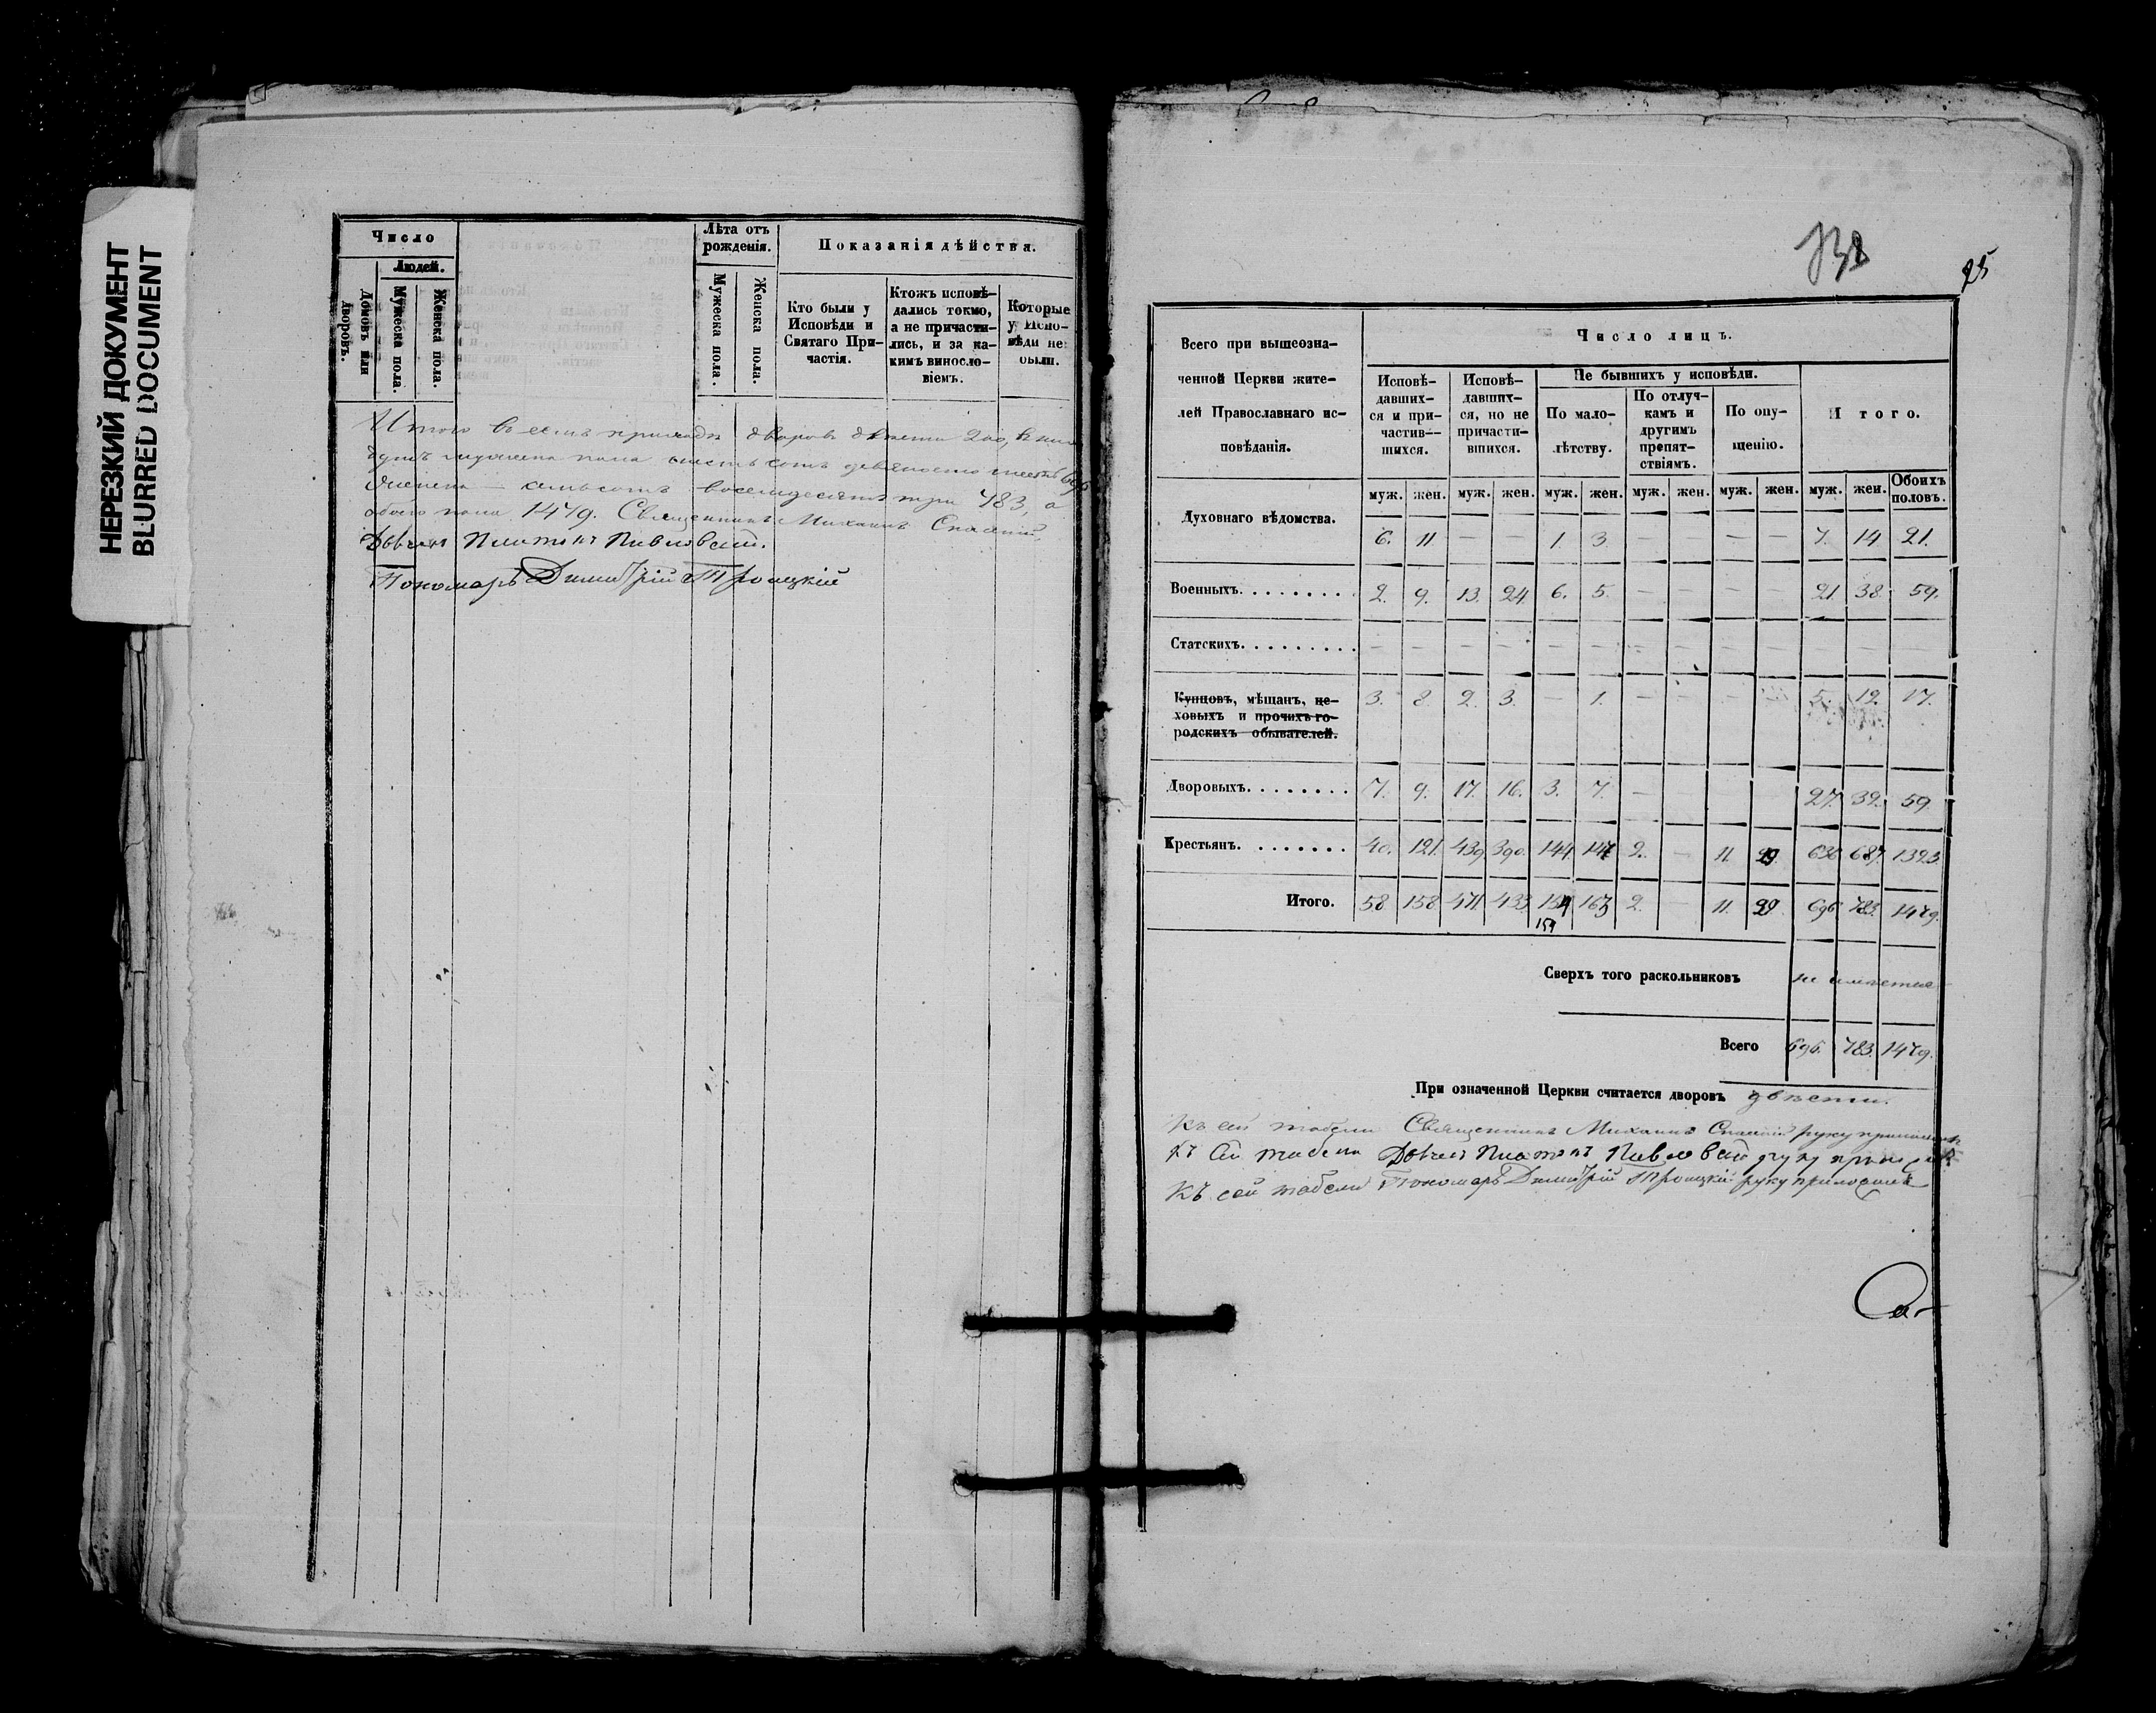 НЕРЕЗКИЙ ДОКУМЕНТ
BLURRED DOCUMENT
Число
Людей.
Домовъ или дворовъ.
Мужеска пола.
Женска пола.
Лѣта отъ рожденія.
Мужеска пола.
Женска пола.
Показанія дѣйства.
Кто были у Исповѣди и Святаго Причастія.
Ктожъ исповѣдались токмо, а не причастились, и за какимъ винословіемъ.
Которые у Исповѣди не были.
Итого во всемъ приходѣ дворовъ двѣсти 200, въ нихъ
душъ мужеска пола шесть сотъ девяносто шесть 696
женска — семьсотъ восемьдесятъ три 783, а
обоего пола 1479. Священникъ Михаилъ Спасскій,
Дьячекъ Платонъ Павловскій.
Пономарь Димитрій Троицкій
25
Всего при вышеозна-
ченной Церкви жите-
лей Православнаго ис-
повѣданія.
Число лицъ.
Исповѣ-
давших-
ся и при-
частив-
шихся.
Исповѣ-
давших-
ся, но не
причасти-
вшихся.
Не бывшихъ у исповѣди.
По мало-
лѣтству.
По отлуч-
камъ и
другимъ
препят-
ствіямъ.
По опу-
щенію.
Итого.
муж. жен. муж. жен. муж. жен. муж. жен. муж. жен. муж. жен. Обоихъ половъ.
Духовнаго вѣдомства. 6. 11 — — 1. 3. — — — — 7. 14 21.
Военныхъ. 2. 9. 13. 24 6. 5. — — — — 21. 38. 59.
Статскихъ. — — — — — — — — — — — — —
Купцовъ, мѣщанъ, це-
ховыхъ и прочихъ го-
родскихъ обывателей.
3. 8. 2. 3. — 1. — — — — 5. 12. 17.
Дворовыхъ. 7. 9. 17. 16. 3. 7. — 27. 32. 59.
Крестьянъ. 40. 121. 439 390. 144 147 2. — 11. 29. 636 687. 1323.
Итого. 58 158 471. 433. 154 163 2. — 11. 29. 696 783. 1479.
154
Сверхъ того раскольниковъ не имѣется
Всего 696. 783. 1479.
При означенной Церкви считается дворовъ двѣсти.
Къ сей табели Священникъ Михаилъ Спасскій руку приложилъ
Къ сей табели Дьячекъ Платонъ Павловскій руку приложилъ
Къ сей табели Пономарь Димитрій Троицкій руку приложилъ